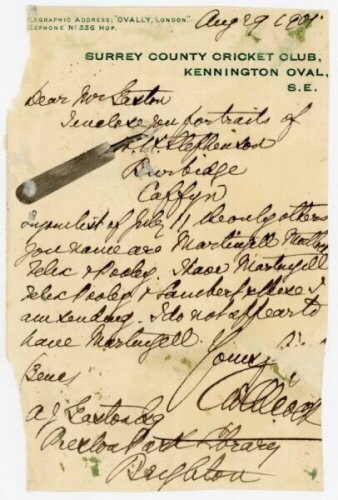 LEGRAPHIC ADDRESS; "OVALLY, LONDON."
LEPHONE No 336 HOP.
Aug 29 1905
SURREY COUNTY CRICKET CLUB,
KENNINGTON OVAL,
S.E.
Dear Mr Gaston
I enclose you portraits of
H. H. Stephenson
Burbidge
Caffyn
in your list of July 11 the only others
you name are Martingell Mullay
Felix & Pooley. I have Martingell
Felix Pooley & Lambert & these I
am sending. I do not appear to
have Martingell.
Yours
A J Gaston Esq
Preston Park Library
Brighton